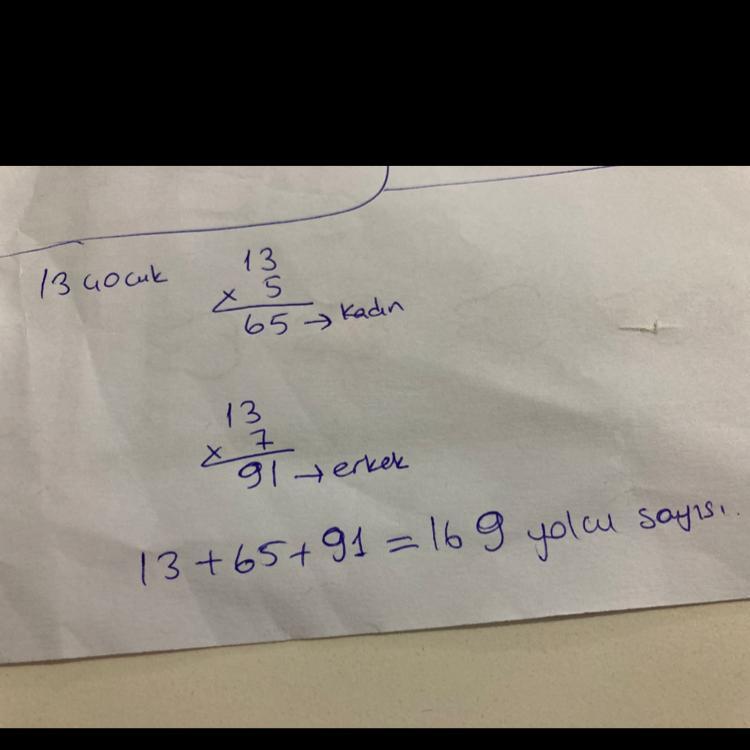 13 çocuk
13
x 5
65 → kadın
13
x 7
91 → erkek
13+65+91 = 169 yolcu sayısı.